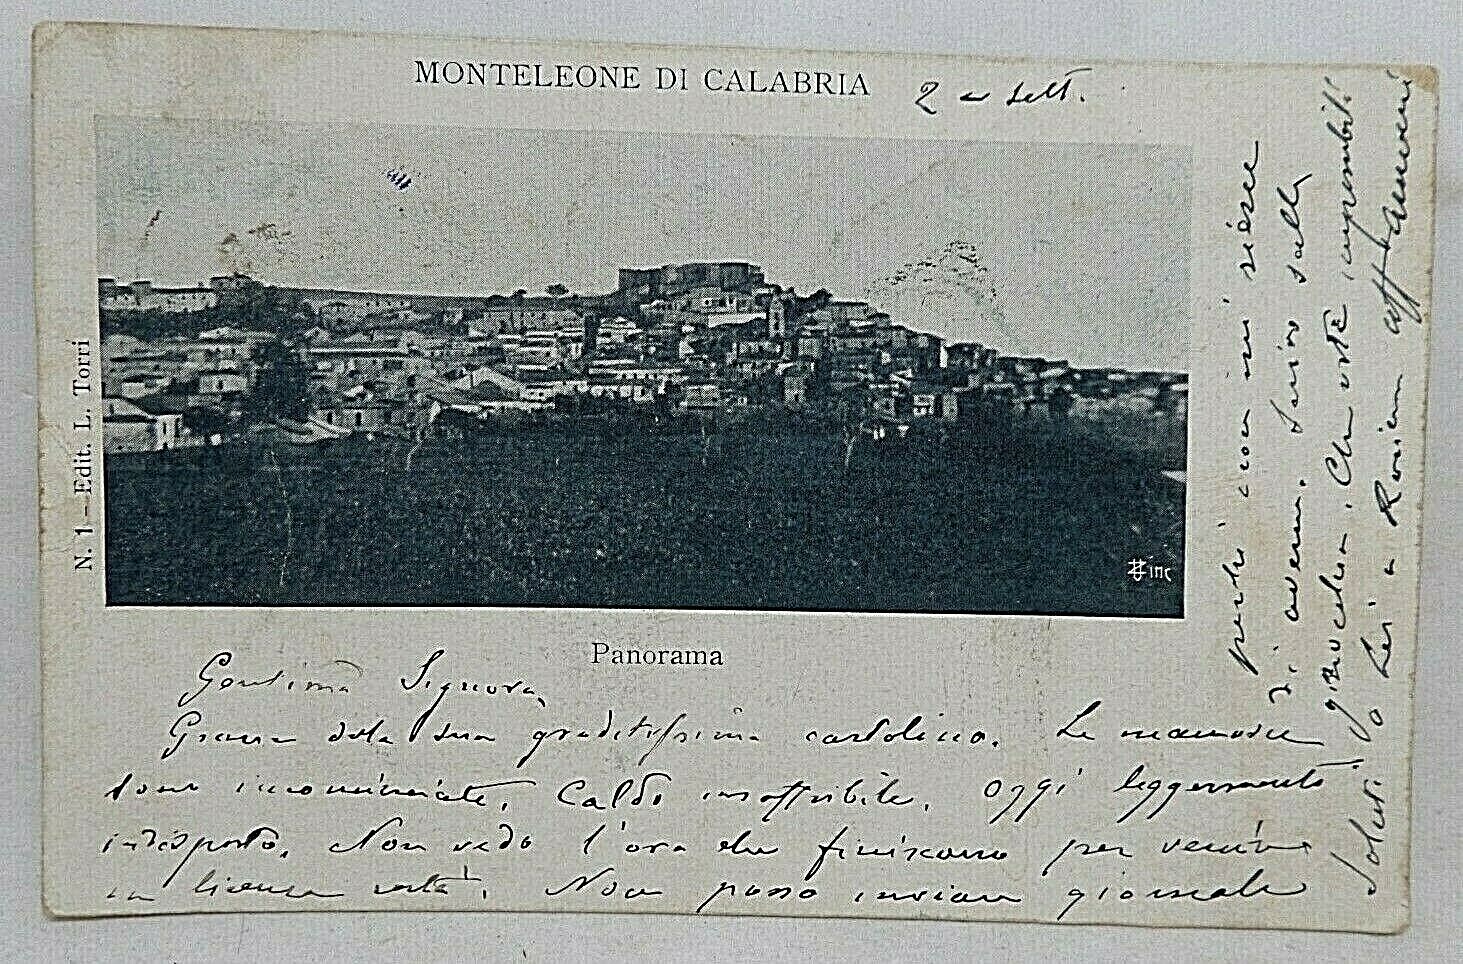 MONTELEONE DI CALABRIA
2 sett.
N. 1 - Edit. L. Torri
inc
Panorama
Gentima Signora,
Grazie della sua graditissima cartolina. Le manovre
sono incominciate. Caldo insoffribile. Oggi leggermente
indisposto. Non vedo l'ora che finiscano per venire
in licenza costà. Non posso inviare giornale
perchè così mi riesce
di averne. Scrivo sulle
ginocchia.
Saluti a Lei a